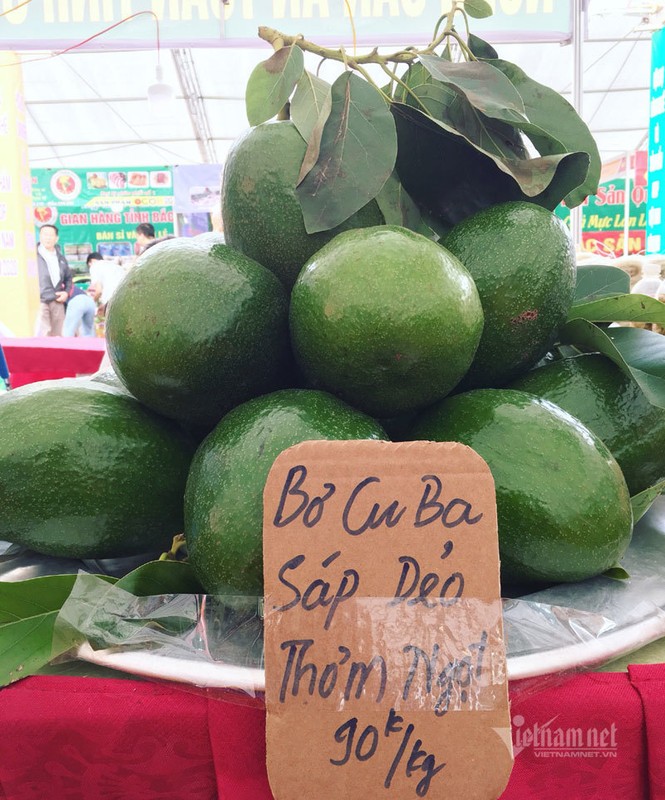 GIAN HÀNG TỈNH BẮC
BÁN SỈ VÀ LẺ
Sản
Mực
Bơ Cu Ba
Sáp Dẻo
Thơm Ngọt
90k/kg
Vietnamnet
VIETNAMNET.VN